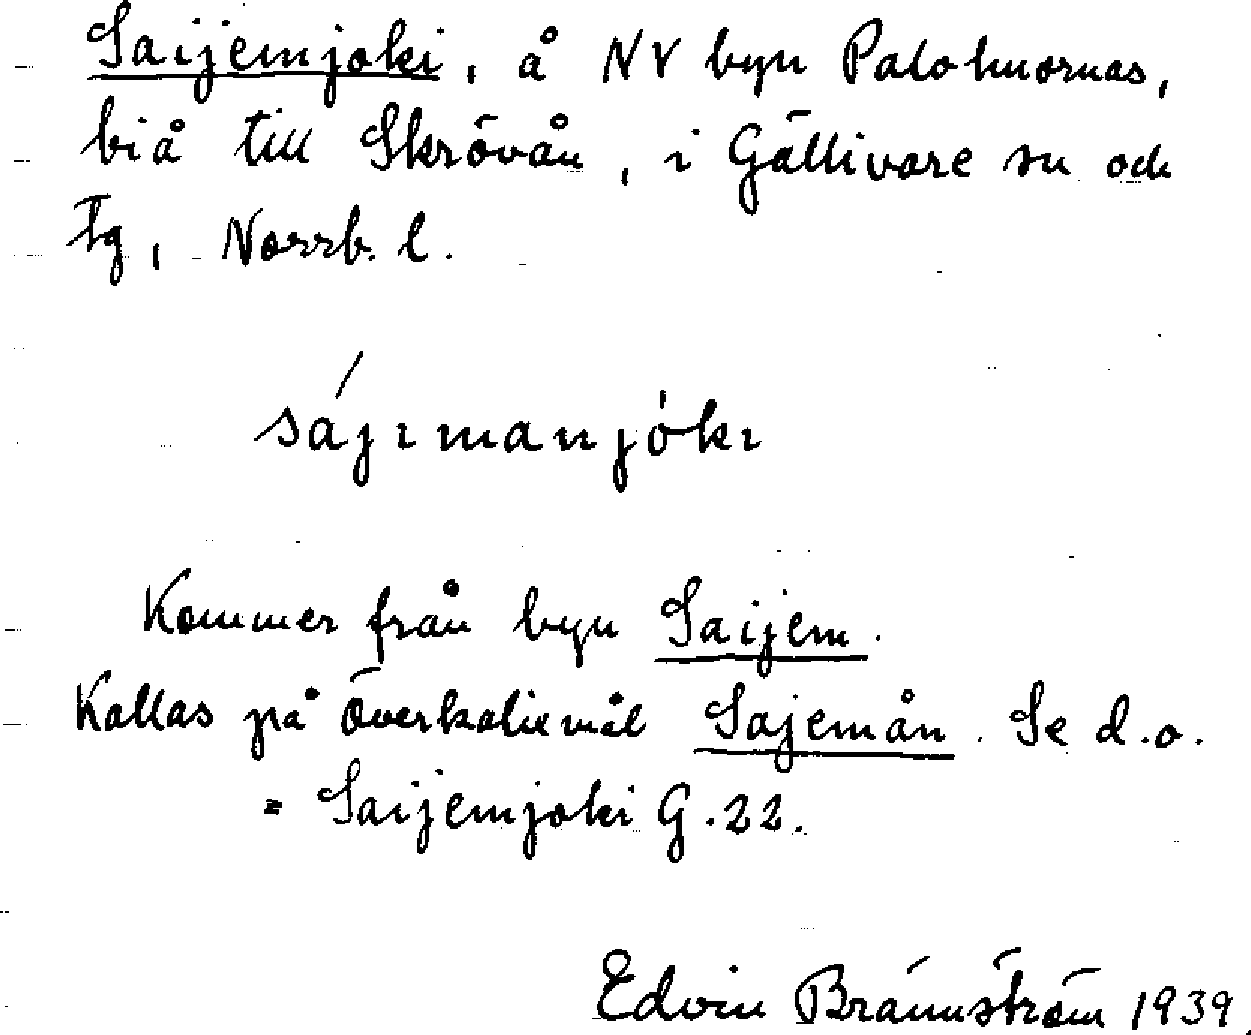 Saijemjoki, å NV byn Palohuornas,
biå till Skrövån, i Gällivare sn och
tg, Norrb. l.
sájımanjókı
Kommer från byn Saijem.
Kallas på överkalixmål Sajemån. Se d.o.
= Saijemjoki G.22.
Edvin Brännström 1939.